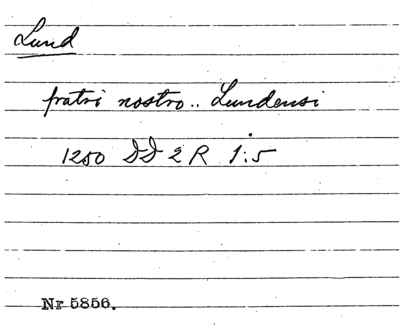 Lund
fratri nostro.. Lundensi
1250 DD 2 R 1:5
Nr 5856.